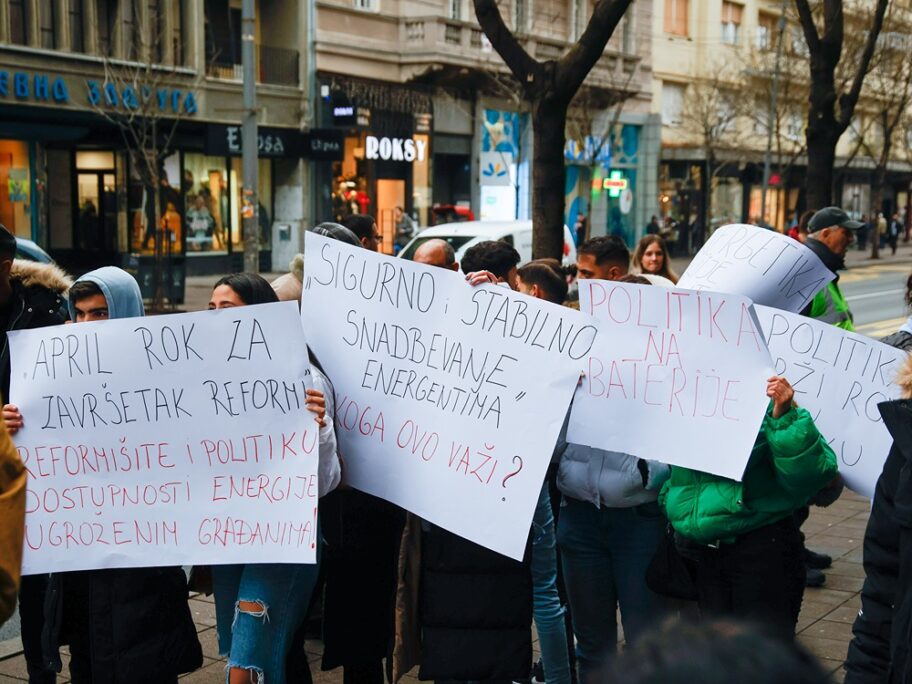 ЗЛАТУГА
ROKSY
„APRIL ROK ZA
ZAVRŠETAK REFORMI"
REFORMIŠITE I POLITIKU
DOSTUPNOSTI ENERGIJE
UGROŽENIM GRAĐANIMA!
„SIGURNO i STABILNO
SNADBEVANJE
ENERGENTIMA"
KOGA OVO VAŽI?
POLITIKA
NA
BATERIJE
POLITIK